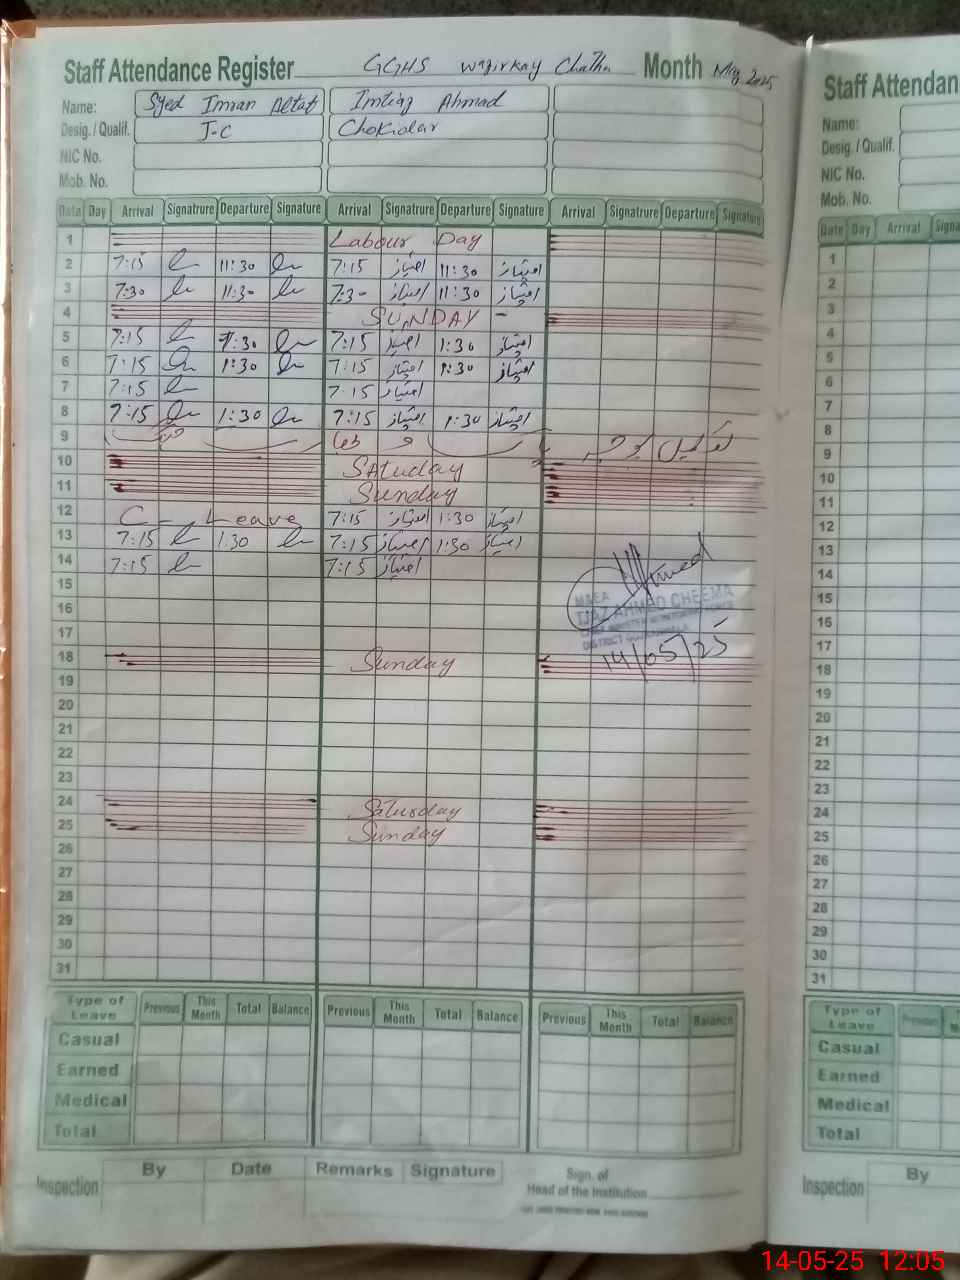 Staff Attendance Register GGHS Wazirkay Chatha Month May 2025
Name: Syed Imran Altaf Imtiaz Ahmad
Desig. / Qualif. J-C Chokidar
NIC No.
Mob. No.
Date Day Arrival Signatrure Departure Signature Arrival Signatrure Departure Signature Arrival Signatrure Departure Signature
1 Labour Day
2 7:15 11:30 7:15 امتیاز 11:30 امتیاز
3 7:30 11:30 7:30 امتیاز 11:30 امتیاز
4 SUNDAY -
5 7:15 1:30 7:15 امتیاز 1:30 امتیاز
6 7:15 1:30 7:15 امتیاز 1:30 امتیاز
7 7:15 7:15 امتیاز
8 7:15 1:30 7:15 امتیاز 1:30 امتیاز
9
10 Satuday
11 Sunday
12 C - Leave 7:15 امتیاز 1:30 امتیاز
13 7:15 1:30 7:15 امتیاز 1:30 امتیاز
14 7:15 7:15 امتیاز
15
16
17
18 Sunday
19
20
21
22
23
24 Saturday
25 Sunday
26
27
28
29
30
31
MEA
IJAZ AHMAD CHEEMA
14/05/25
Type of Leave Previous This Month Total Balance Previous This Month Total Balance Previous This Month Total Balance
Casual
Earned
Medical
Total
Inspection By Date Remarks Signature
Sign. of
Head of the Institution
Staff Attendan
Name:
Desig. / Qualif.
NIC No.
Mob. No.
Date Day Arrival Signa
1
2
3
4
5
6
7
8
9
10
11
12
13
14
15
16
17
18
19
20
21
22
23
24
25
26
27
28
29
30
31
Type of Leave Previous
Casual
Earned
Medical
Total
Inspection By
14-05-25 12:05